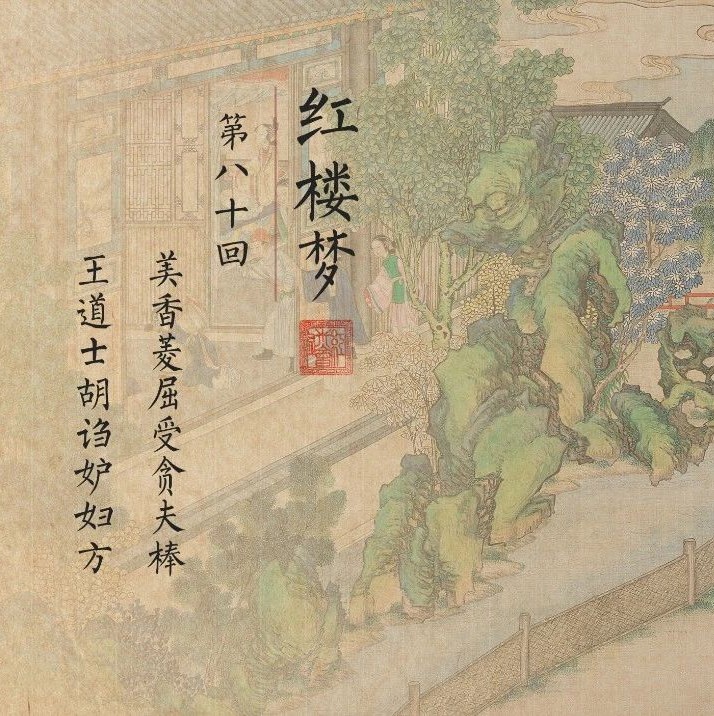 红楼梦
第八十回
美香菱屈受贪夫棒
王道士胡诌妒妇方